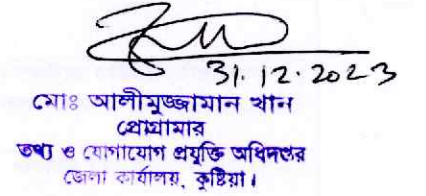 31.12.2023
মোঃ আলীমুজ্জামান খান
প্রোগ্রামার
তথ্য ও যোগাযোগ প্রযুক্তি অধিদপ্তর
জেলা কার্যালয়, কুষ্টিয়া।